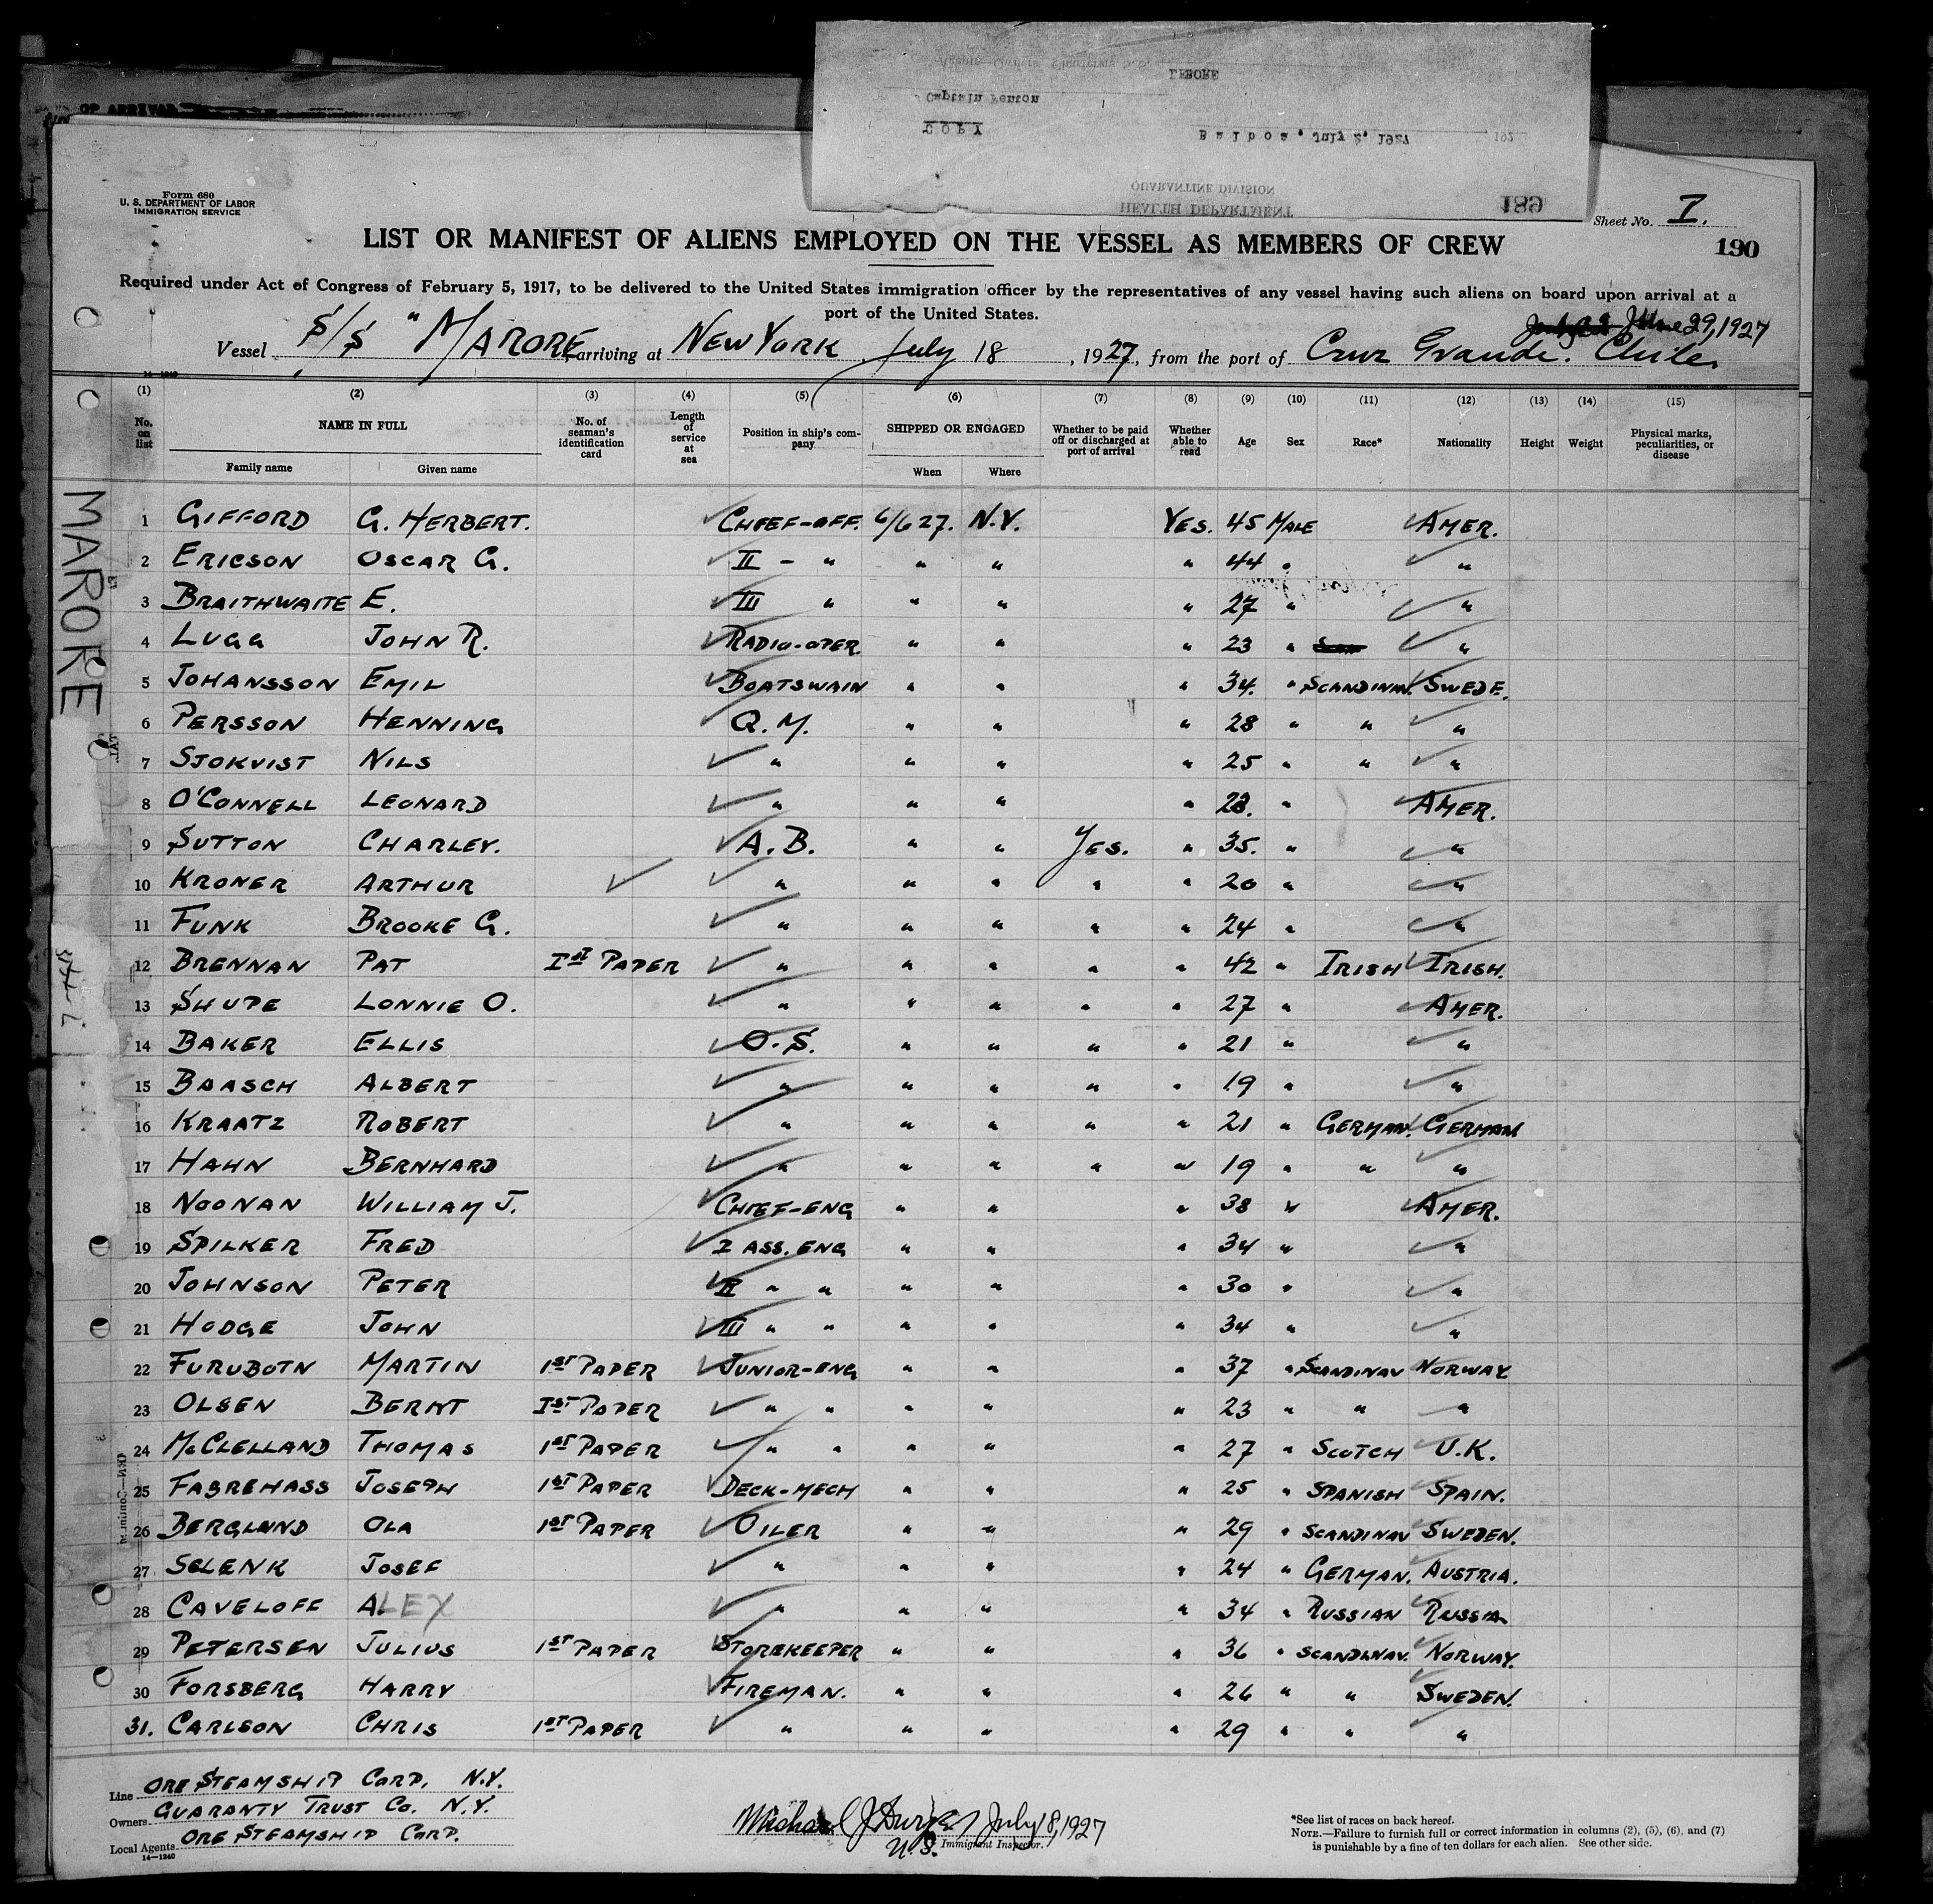 OF ARRIVAL
LEBORE
Captain Fenton
COPY
Balboa, July 2, 1927 192
QUARANTINE DIVISION
HEALTH DEPARTMENT
189
Form 680
U. S. DEPARTMENT OF LABOR
IMMIGRATION SERVICE
Sheet No. I.
LIST OR MANIFEST OF ALIENS EMPLOYED ON THE VESSEL AS MEMBERS OF CREW
190
Required under Act of Congress of February 5, 1917, to be delivered to the United States immigration officer by the representatives of any vessel having such aliens on board upon arrival at a
port of the United States.
June 29, 1927
Vessel S/S "MARORE arriving at NEW YORK July 18, 1927, from the port of Cruz Grande. Chile.
(1) (2) (3) (4) (5) (6) (7) (8) (9) (10) (11) (12) (13) (14) (15)
No. on list NAME IN FULL No. of seaman's identification card Length of service at sea Position in ship's company SHIPPED OR ENGAGED Whether to be paid off or discharged at port of arrival Whether able to read Age Sex Race* Nationality Height Weight Physical marks, peculiarities, or disease
Family name Given name When Where
MARORE
1 GIFFORD G. HERBERT. CHIEF-OFF. 6/6 27. N.Y. YES. 45 MALE AMER.
2 ERICSON OSCAR G. II - " " " " 44 " "
3 BRAITHWAITE E. III " " " " 27 " "
4 LUGG JOHN R. RADIO-OPER. " " " 23 " "
5 JOHANSSON EMIL BOATSWAIN " " " 34. " SCANDINAV. SWEDE.
6 PERSSON HENNING Q.M. " " " 28 " " "
7 STOKVIST NILS " " " " 25 " " "
8 O'CONNELL LEONARD " " " " 23. " AMER.
9 SUTTON CHARLEY. A.B. " " YES. " 35. " "
10 KRONER ARTHUR " " " " " 20 " "
11 FUNK BROOKE G. " " " " " 24 " "
12 BRENNAN PAT Ist PAPER " " " " " 42 " IRISH IRISH.
13 SHUPE LONNIE O. " " " " " 27 " AMER.
14 BAKER ELLIS O.S. " " " " 21 " "
15 BAASCH ALBERT " " " " " 19 " "
16 KRAATZ ROBERT " " " " " 21 " GERMAN. GERMAN
17 HAHN BERNHARD " " " " " 19 " " "
18 NOONAN WILLIAM J. CHIEF-ENG " " " 38 " AMER.
19 SPILKER FRED I ASS. ENG " " " 34 " "
20 JOHNSON PETER II " " " " " 30 " "
21 HODGE JOHN III " " " " " 34 " "
22 FURUBOTN MARTIN 1ST PAPER JUNIOR-ENG " " " 37 " SCANDINAV NORWAY
23 OLSEN BERNT IST PAPER " " " " " 23 " " "
24 McCLELLAND THOMAS 1ST PAPER " " " " " 27 " SCOTCH U.K.
25 FABREHASS JOSEPH 1ST PAPER DECK-MECH " " " 25 " SPANISH SPAIN.
26 BERGLUND OLA 1ST PAPER OILER " " " 29 " SCANDINAV SWEDEN.
27 SELENK JOSEF " " " " 24 " GERMAN. AUSTRIA.
28 CAVELOFF ALEX " " " " 34 " RUSSIAN RUSSIA
29 PETERSEN JULIUS 1ST PAPER STOREKEEPER " " " 36 " SCANDINAV. NORWAY.
30 FORSBERG HARRY FIREMAN. " " " 26 " " SWEDEN.
31. CARLSON CHRIS 1ST PAPER " " " " 29 " " "
Line ORE STEAMSHIP CORP. N.Y.
Owners GUARANTY TRUST CO. N.Y.
Local Agents ORE STEAMSHIP CORP.
14—1240
Michael J July 18, 1927
U.S. Immigrant Inspector.
*See list of races on back hereof.
NOTE.—Failure to furnish full or correct information in columns (2), (5), (6), and (7)
is punishable by a fine of ten dollars for each alien. See other side.